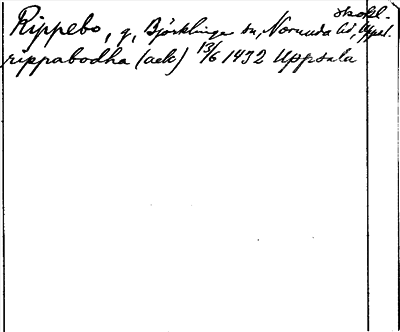 skokl.
Rippebo, g, Björklinge sn, Norunda hd, Uppl.
rippabodha (ack) 13/6 1432 Uppsala